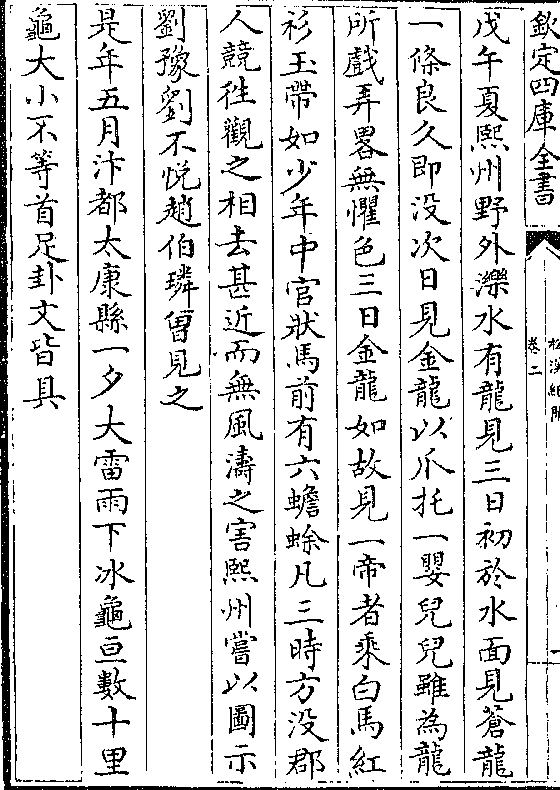 欽定四庫全書
松漠紀聞
卷二
戊午夏熙州野外濼水有龍見三日初於水面見蒼龍
一條良久即没次日見金龍以爪托一嬰兒兒雖為龍
所戲弄畧無懼色三日金龍如故見一帝者乘白馬紅
衫玉帶如少年中官狀馬前有六蟾蜍凡三時方没郡
人競徃觀之相去甚近而無風濤之害熙州嘗以圖示
劉豫劉不悦趙伯璘曾見之
是年五月汴都太康縣一夕大雷雨下冰龜亘數十里
龜大小不等首足卦文皆具